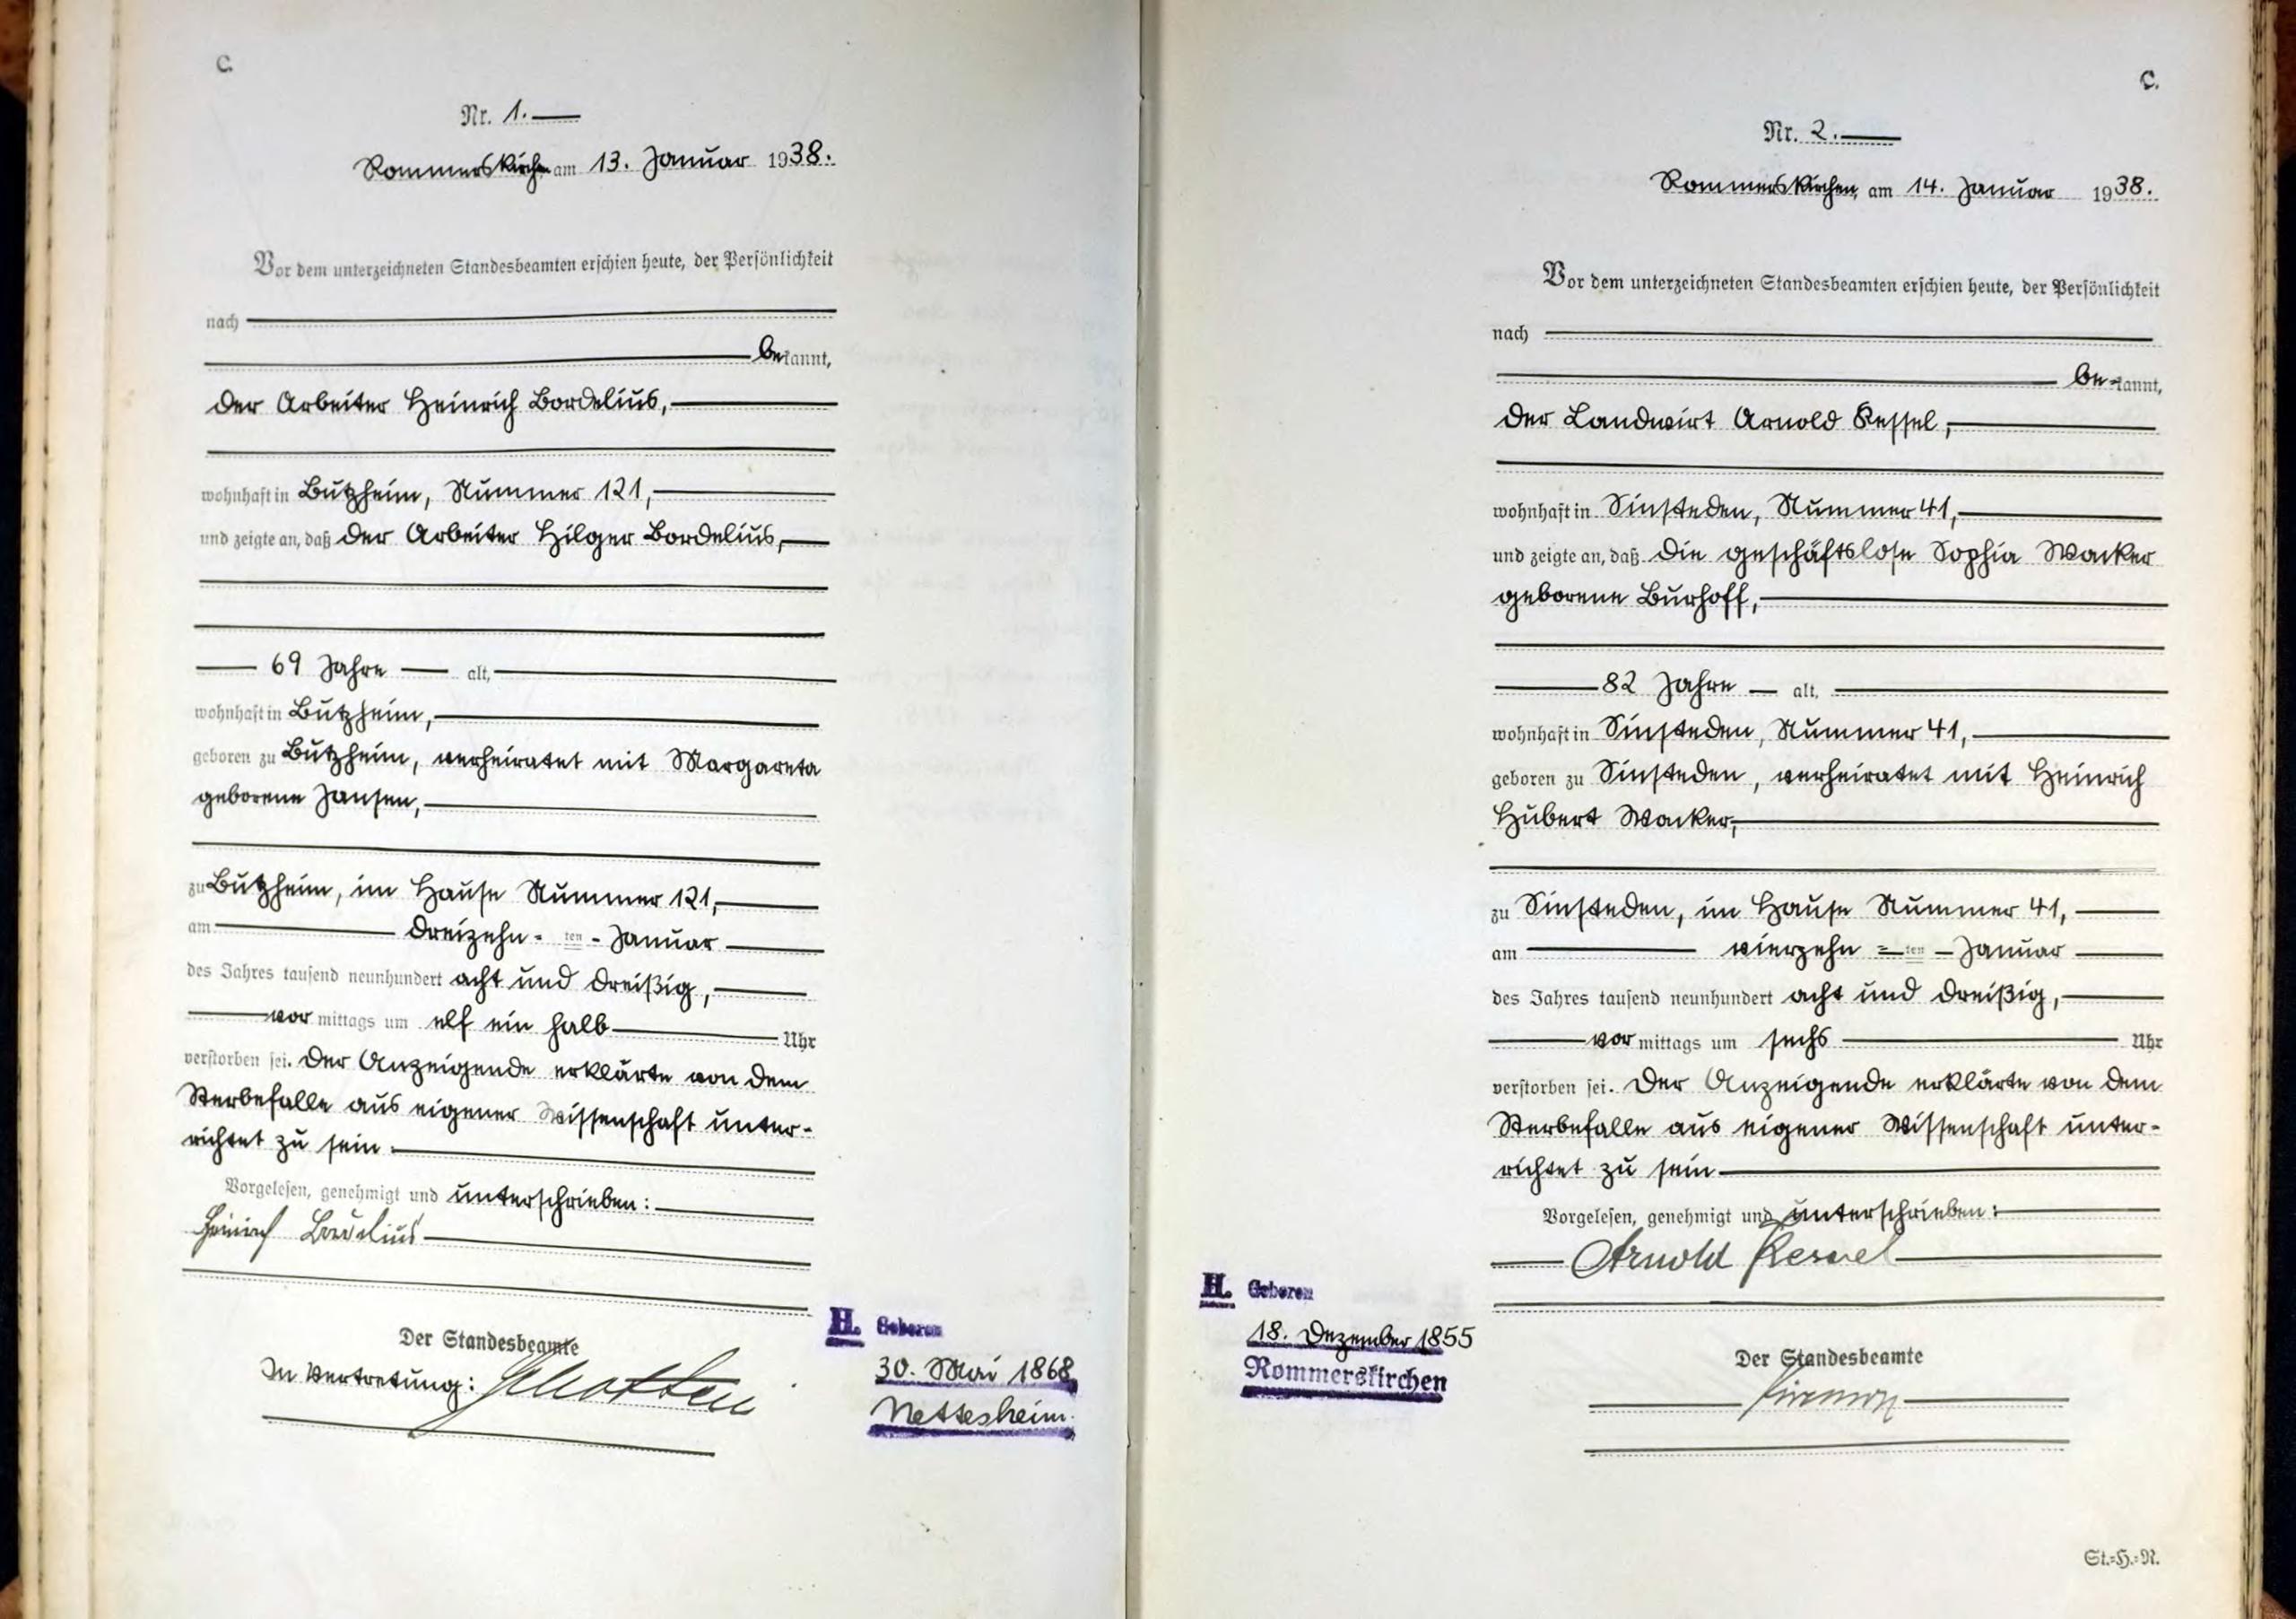 C.
Nr. 1.
Rommerskirchen am 13. Januar 1938.
Vor dem unterzeichneten Standesbeamten erschien heute, der Persönlichkeit
nach
bekannt,
der Arbeiter Heinrich Bordelius,
wohnhaft in Butzheim, Nummer 121,
und zeigte an, daß der Arbeiter Hilger Bordelius,
69 Jahre alt,
wohnhaft in Butzheim,
geboren zu Butzheim, verheiratet mit Margareta
geborene Jansen,
zu Butzheim, im Hause Nummer 121,
am dreizehn-ten-Januar
des Jahres tausend neunhundert acht und dreißig,
vormittags um elf ein halb Uhr
verstorben sei. Der Anzeigende erklärte von dem
Sterbefalle aus eigener Wissenschaft unter-
richtet zu sein.
Vorgelesen, genehmigt und unterschrieben:
Heinrich Bordelius
Der Standesbeamte
In Vertretung:
H. Geboren
30. Mai 1868
Nettesheim.
C.
Nr. 2.
Rommerskirchen, am 14. Januar 1938.
Vor dem unterzeichneten Standesbeamten erschien heute, der Persönlichkeit
nach
be-kannt,
der Landwirt Arnold Kessel,
wohnhaft in Sinsteden, Nummer 41,
und zeigte an, daß die geschäftslose Sophia Wacker
geborene Burhoff,
82 Jahre alt,
wohnhaft in Sinsteden, Nummer 41,
geboren zu Sinsteden, verheiratet mit Heinrich
Hubert Wacker,
zu Sinsteden, im Hause Nummer 41,
am vierzehn-ten-Januar
des Jahres tausend neunhundert acht und dreißig,
vormittags um sechs Uhr
verstorben sei. Der Anzeigende erklärte von dem
Sterbefalle aus eigener Wissenschaft unter-
richtet zu sein
Vorgelesen, genehmigt und unterschrieben:
Arnold Kessel
H. Geboren
18. Dezember 1855
Rommerskirchen
Der Standesbeamte
St.=H.=R.